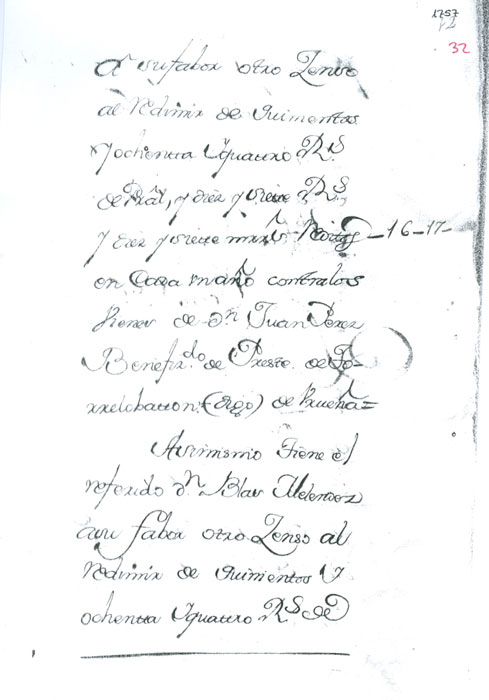 1757
32
a su fabor otro Zenso
al Redimir de Quimentos
y ochentta y quattro R.s
de Pral, y diez y siete R.s
y diez y siette mrs Reditos - 16-17-
en Cada un año contra los
Vienes de Dn Juan Perez
Benefiz.do de Preste de To=
rrelobatton (digo) de Prueña=
Assimismo tiene el
referido Dn Blas Melendez
a su fabor otro Zenso al
Redimir de Quimentos y
ochentta y quattro R.s de